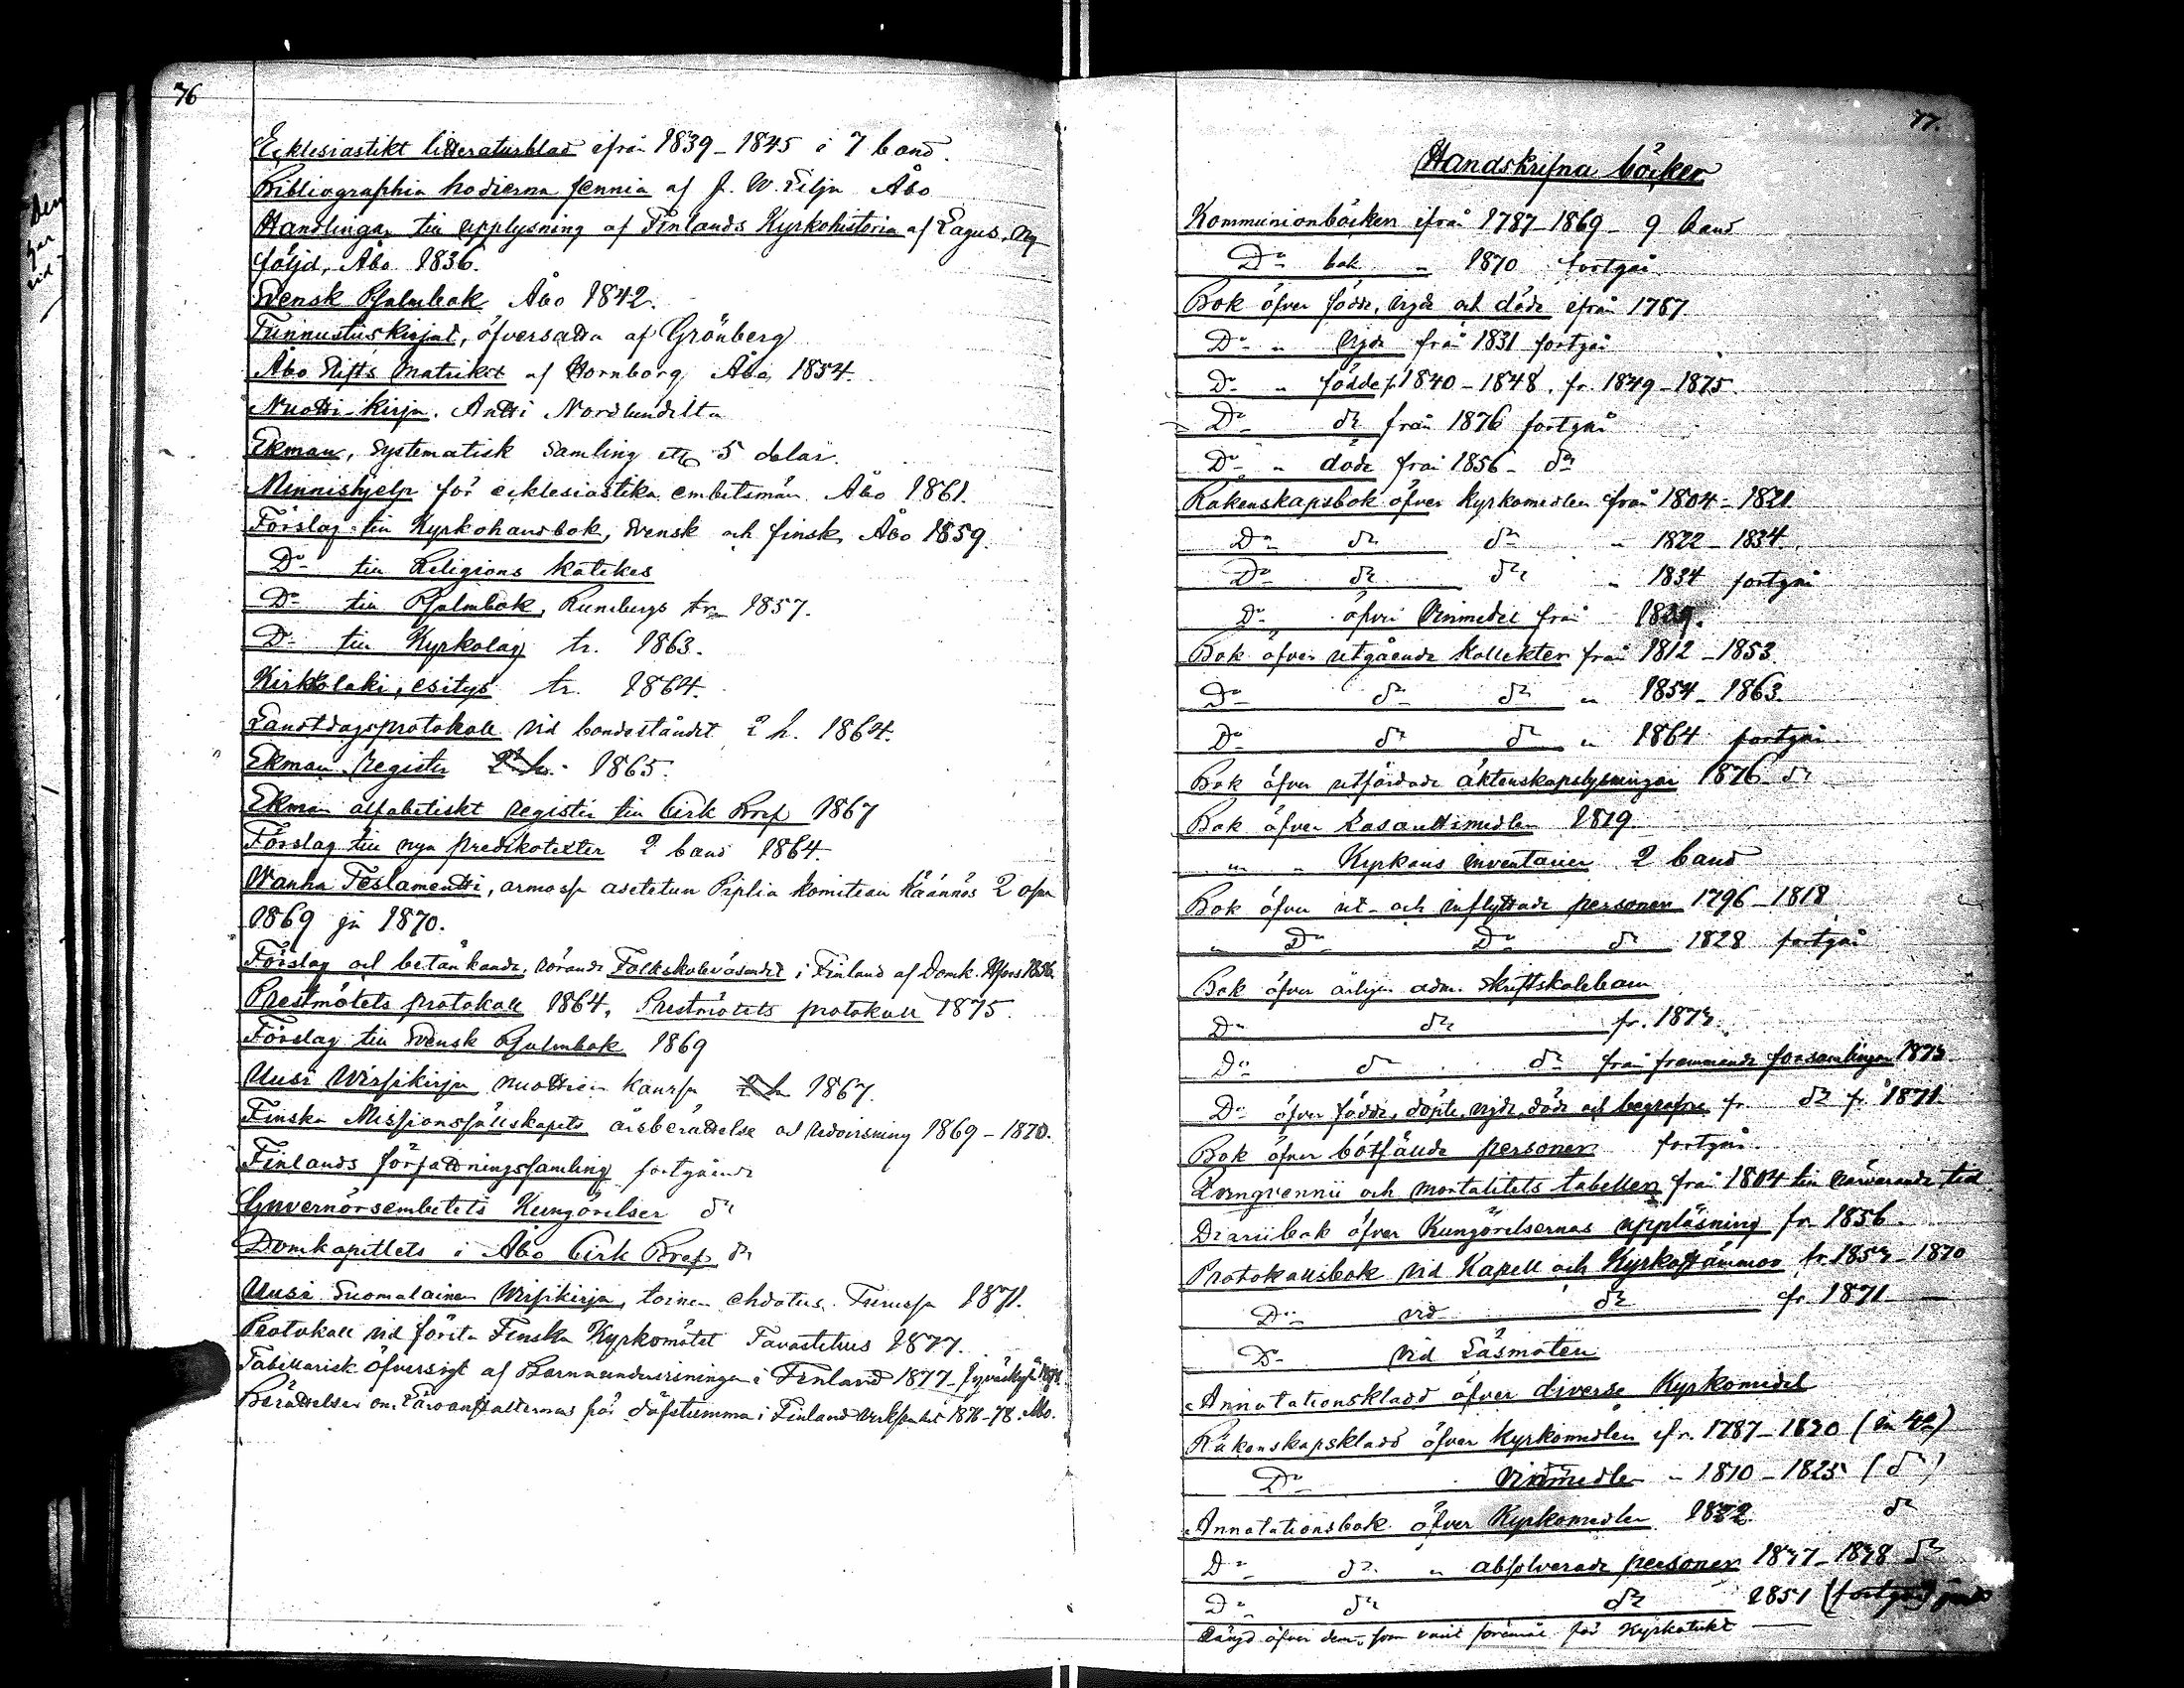 76
Ecklesiastikt litteraturblad ifrån 1839-1845 i 7 band.
Bibliographia hodierna fennia af J. W. Lilja Åbo
Handlingar till upplysning af Finlands Kyrkohistoria af Lagus, Ny
följd, Åbo 1836.
Svensk Psalmbok Åbo 1842.
Tunnustuskirjat, öfversatta af Grönberg
Åbo Stifts Matrikel af Hornborg, Åbo, 1854.
Nuotti-kirja. Antti Nordlundilta
Ekman, Systematisk Samling 5 delar.
Minneshjelp för ecklesiastika embetsmän Åbo 1861.
Förslag till Kyrkohandbok, Svensk och finsk, Åbo 1859.
Do till Religions katekes
Do till Psalmbok, Runebergs tr. 1857.
Do till Kyrkolag tr. 1863.
Kirkkolaki, esitys tr. 1864.
Landtdagsprotokoll vid bondeståndet 2 h. 1864.
Ekman register 1865.
Ekman alfabetiskt register till Cirk Bref 1867
Förslag till nya predikotexter 2 band 1864.
Wanha Testamentti, armossa asetetun Piplia komitean Käännös 2 osa
1869 ja 1870.
Förslag och betänkande, rörande Folkskoleväsendet i Finland af Domk. Hfors 1856
Prestmötets protokoll 1864, Prestmötets protokoll 1875.
Förslag till Svensk Psalmbok 1869
Uusi Wirsikirja nuottien kanssa 1867.
Finska Missionssällskapets årsberättelse och redovisning 1869-1870.
Finlands författningssamling fortgående
Guvernörsembetets Kungörelser do
Domkapitlets i Åbo Cirk Bref do
Uusi Suomalainen Wirsikirja, toinen ehdotus. Turussa 1871.
Protokoll vid första Finska Kyrkomötet Tavastehus 1877.
Tabellarisk öfversigt af Barnaundervisningen i Finland 1877 Jyväskylä 1878.
Berättelser om Läroanstalterna för döfstumma i Finland 1876-78. Åbo.
77.
Handskrifna böcker
Kommunionböcker ifrån 1787-1869 - 9 band
Do bok " 1870 fortgår
Bok öfver födde, vigde och döde ifrån 1787.
Do " vigde från 1831 fortgår
Do " födde fr. 1840-1848. fr. 1849-1875.
Do do från 1876 fortgår
Do " döde från 1856- do
Räkenskapsbok öfver kyrkomedlen från 1804-1821
Do do do " 1822-1834.
Do do do " 1834 fortgår
Do öfver Vinmedel från 1829.
Bok öfver utgående Kollekter från 1812-1853.
Do do do " 1854-1863.
Do do do " 1864 fortgår
Bok öfver utfärdade äktenskapslysningar 1876 do
Bok öfver Lasarettsmedlen 1819.
" " Kyrkans inventarier 2 band
Bok öfver ut- och inflyttade personer 1796-1818
" Do Do do 1828 fortgår
Bok öfver årligen adm. skriftskolebarn
Do do fr. 1873.
Do do do från främmande församlingar 1873
Do öfver födde, döpte, vigde, döde och begrafne fr. do fr. 1871
Bok öfver botfällde personer fortgår.
och mortalitets tabeller från 1804 till närvarande tid
Diariibok öfver Kungörelsernas uppläsning fr. 1856.
Protokollsbok vid Kapell och Kyrkostämmor fr. 1853-1870
Do vid do fr. 1871
Do vid Läsmöten
Annotationskladd öfver diverse Kyrkomedel
Räkenskapskladd öfver kyrkomedlen ifr. 1787-1820 (in 4to)
Do Vinmedlen - 1810-1825 (do)
Annotationsbok öfver Kyrkomedlen 1822. do
Do do " absolverade personer 1837-1838 do
Do do do 1851
Längd öfver dem, som varit föremål för Kyrkotukt